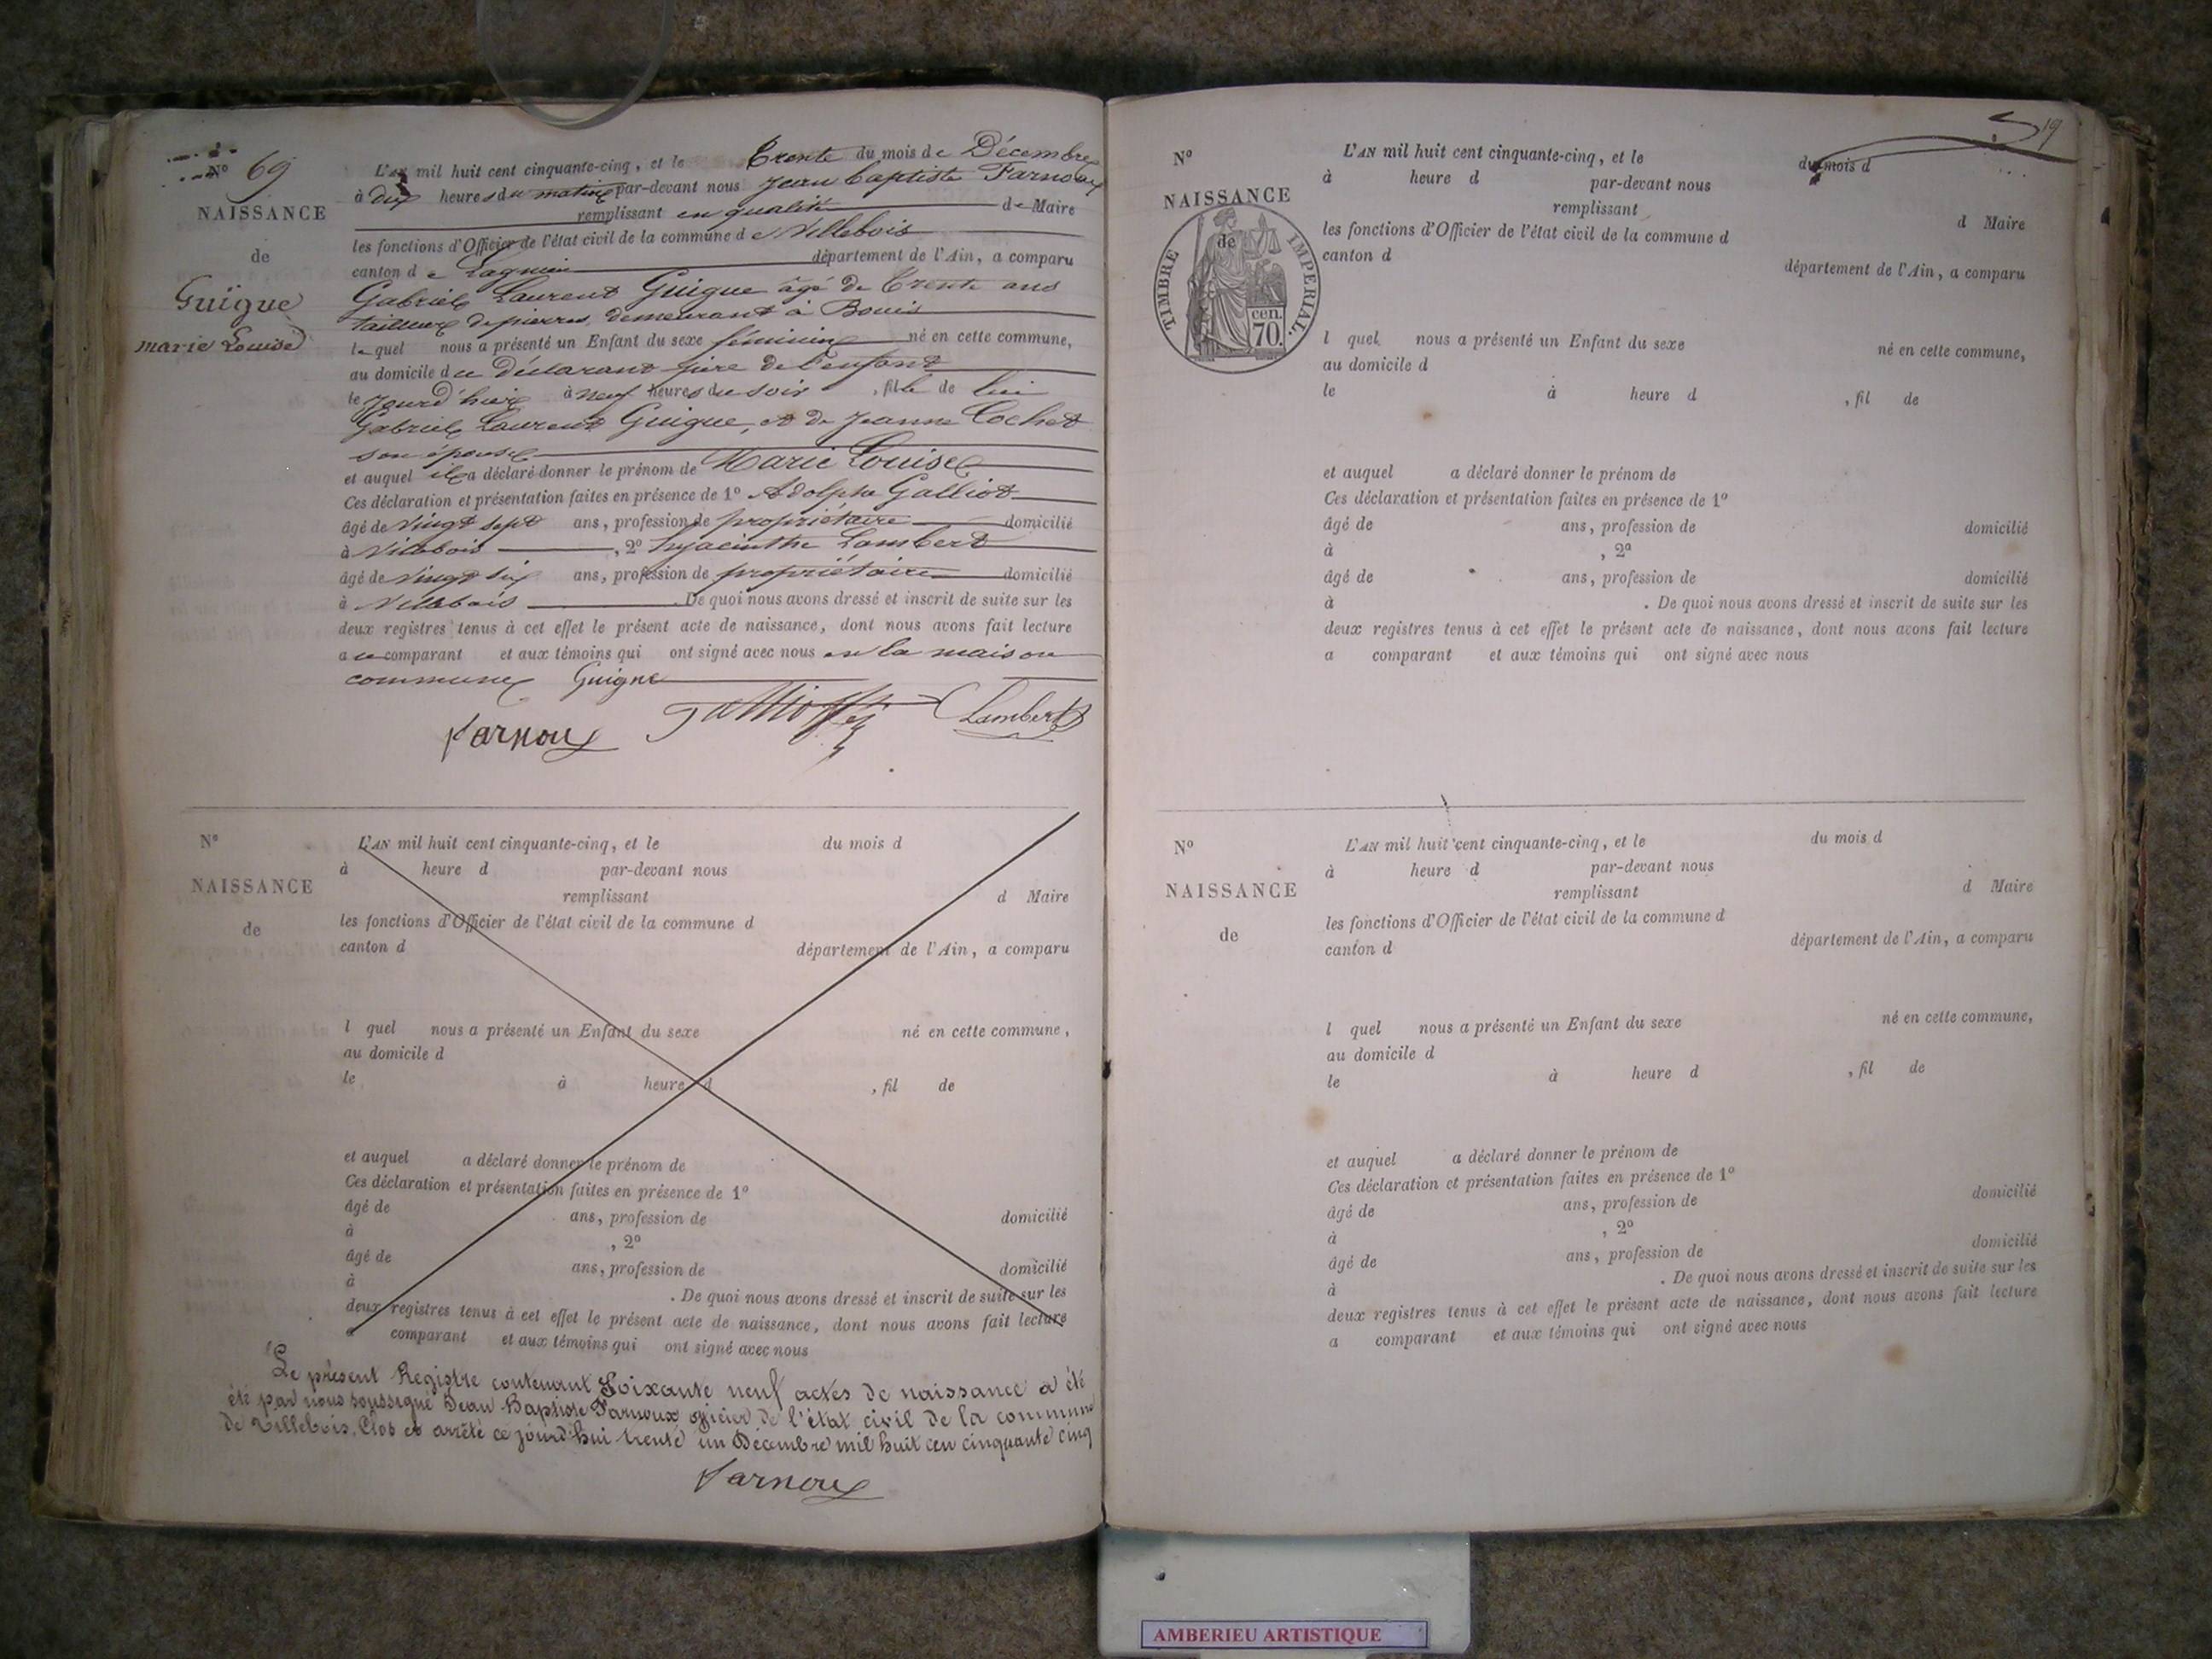 N° 69
NAISSANCE
de
Guigue
marie Louise
L'AN mil huit cent cinquante-cinq, et le Trente du mois de Décembre
à dix heures du matin par-devant nous Jean Baptiste Farnoux
remplissant en qualité de Maire
les fonctions d'Officier de l'état civil de la commune de Villebois
canton de Lagnieu département de l'Ain, a comparu
Gabriel Laurent Guigue âgé de Trente ans
tailleur de pierres, demeurant à Bouis
lequel nous a présenté un Enfant du sexe féminin né en cette commune,
au domicile du déclarant père de l'enfant
le jourd'hier à neuf heures du soir, fille de lui
Gabriel Laurent Guigue, et de Jeanne Cochet
son épouse
et auquel il a déclaré donner le prénom de Marie Louise
Ces déclaration et présentation faites en présence de 1° Adolphe Galliot
âgé de vingt sept ans, profession de propriétaire domicilié
à Villebois, 2° hyacinthe Lambert
âgé de vingt six ans, profession de propriétaire domicilié
à Villebois. De quoi nous avons dressé et inscrit de suite sur les
deux registres tenus à cet effet le présent acte de naissance, dont nous avons fait lecture
au comparant et aux témoins qui ont signé avec nous en la maison
commune Guigue
Farnoux Galliot Lambert
N°
NAISSANCE
de
L'AN mil huit cent cinquante-cinq, et le du mois d
à heure d par-devant nous
remplissant d Maire
les fonctions d'Officier de l'état civil de la commune d
canton d département de l'Ain, a comparu
l quel nous a présenté un Enfant du sexe né en cette commune,
au domicile d
le à heure d , fil de
et auquel a déclaré donner le prénom de
Ces déclaration et présentation faites en présence de 1°
âgé de ans, profession de domicilié
à , 2°
âgé de ans, profession de domicilié
à . De quoi nous avons dressé et inscrit de suite sur les
deux registres tenus à cet effet le présent acte de naissance, dont nous avons fait lecture
a comparant et aux témoins qui ont signé avec nous
Le présent Registre contenant Soixante neuf actes de naissance a été
été par nous soussigné Jean Baptiste Farnoux officier de l'état civil de la commune
de Villebois. Clos et arrêté ce jourd'hui trente un Décembre mil huit cen cinquante cinq
Farnoux
19
N°
NAISSANCE
de
TIMBRE IMPERIAL.
cen.
70.
L'AN mil huit cent cinquante-cinq, et le du mois d
à heure d par-devant nous
remplissant d Maire
les fonctions d'Officier de l'état civil de la commune d
canton d département de l'Ain, a comparu
l quel nous a présenté un Enfant du sexe né en cette commune,
au domicile d
le à heure d , fil de
et auquel a déclaré donner le prénom de
Ces déclaration et présentation faites en présence de 1°
âgé de ans, profession de domicilié
à , 2°
âgé de ans, profession de domicilié
à . De quoi nous avons dressé et inscrit de suite sur les
deux registres tenus à cet effet le présent acte de naissance, dont nous avons fait lecture
a comparant et aux témoins qui ont signé avec nous
N°
NAISSANCE
de
L'AN mil huit cent cinquante-cinq, et le du mois d
à heure d par-devant nous
remplissant d Maire
les fonctions d'Officier de l'état civil de la commune d
canton d département de l'Ain, a comparu
l quel nous a présenté un Enfant du sexe né en cette commune,
au domicile d
le à heure d , fil de
et auquel a déclaré donner le prénom de
Ces déclaration et présentation faites en présence de 1°
âgé de ans, profession de domicilié
à , 2°
âgé de ans, profession de domicilié
à . De quoi nous avons dressé et inscrit de suite sur les
deux registres tenus à cet effet le présent acte de naissance, dont nous avons fait lecture
a comparant et aux témoins qui ont signé avec nous
AMBERIEU ARTISTIQUE